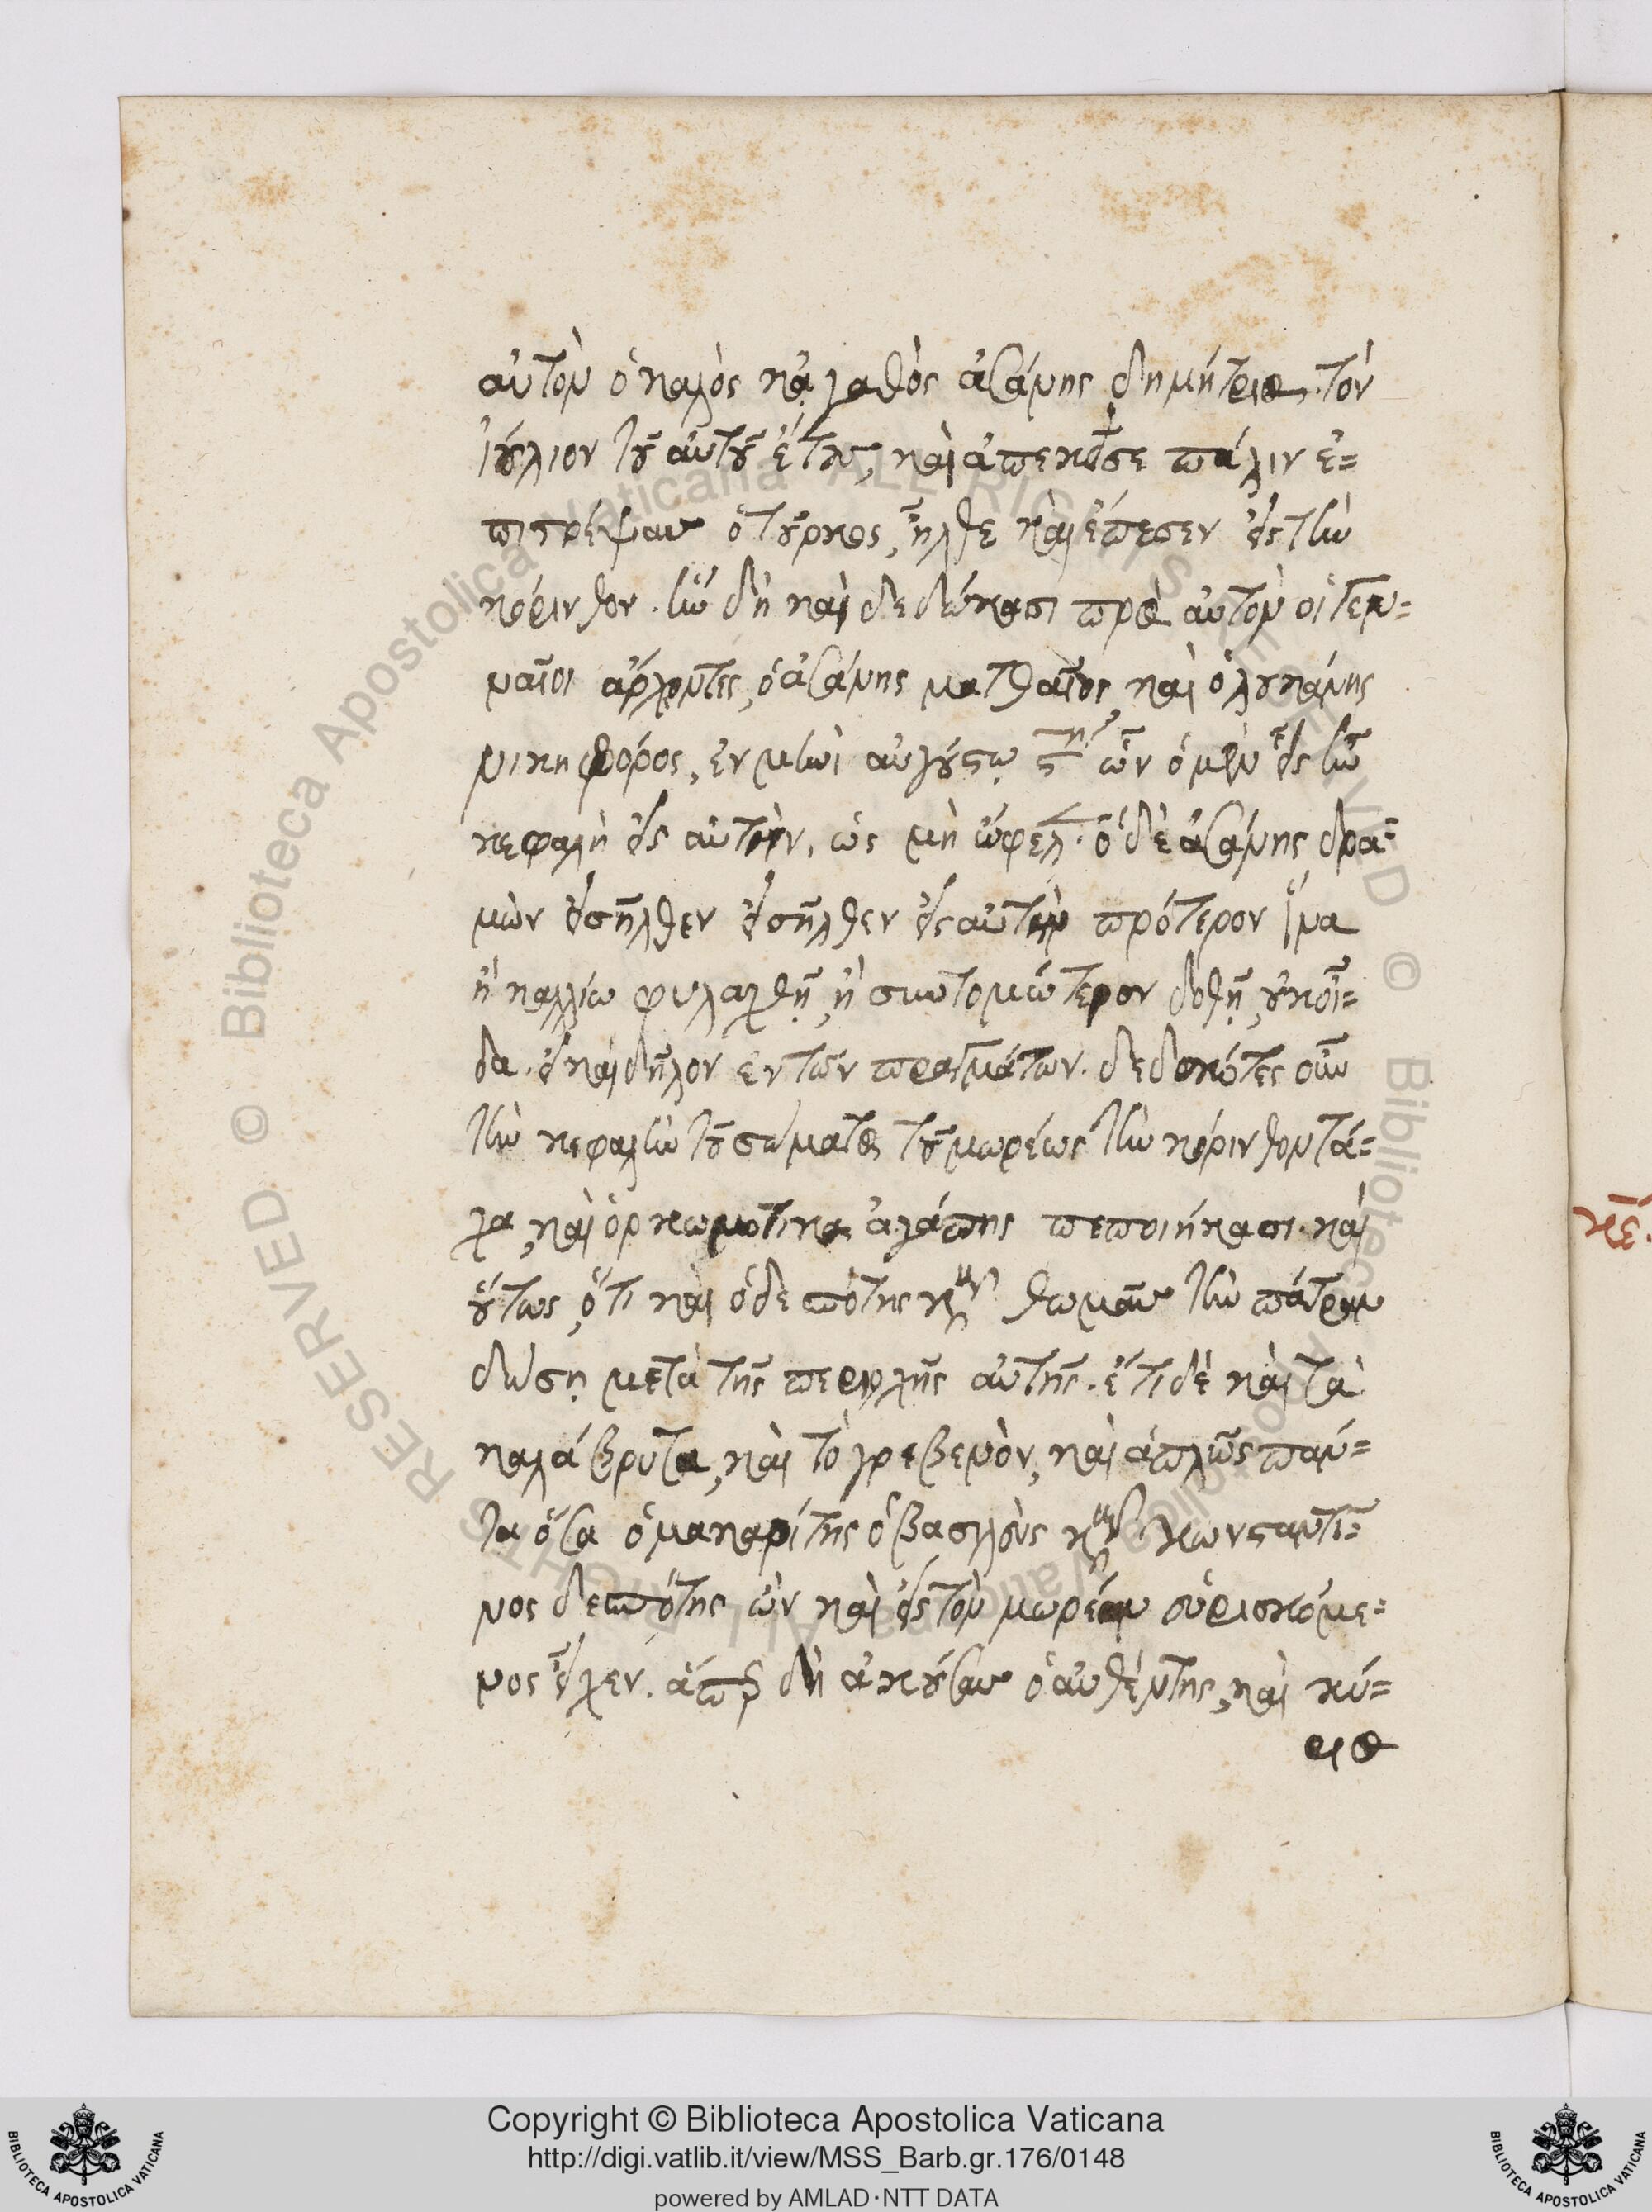 αὐτὸν ὁ καλὸς κἀγαθὸς ἀσάνης δημήτριος. τὸν
ἰούλιον τοῦ αὐτοῦ ἔτους, καὶ ἀπεκεῖσε πάλιν ἐ=
πιστρέψαν ὁ τοῦρκος, ἦλθε καὶ ἔπεσεν εἰς τὴν
κόρινθον. ἣν δὴ καὶ δεδώκασι πρὸς αὐτὸν οἱ
μαῖοι ἄρχοντες, ὁ ἀσάνης ματθαῖος, καὶ ὁ λουκάνης
νικηφόρος, ἐν μηνὶ αὐγούστῳ ϛῃ ὧν ὁ μὲν ἦν
κεφαλὴ εἰς αὐτὴν, ὡς μὴ ὤφελ. ὁ δὲ ἀσάνης δρα=
μὼν εἰσῆλθεν εἰσῆλθεν εἰς αὐτὴν πρότερον ἵνα
ἢ καλλίω φυλαχθῇ, ἢ συντομώτερον δοθῇ, οὐκ οἶ=
δα. εἰ καὶ δῆλον ἐν τῶν πραγμάτων. δεδοκότες οὖν
τὴν κεφαλὴν τοῦ σώματος τοῦ μωρέως τὴν κόρινθον τά=
χα, καὶ ὁρκωμοτικα ἀγάπης πεποιήκασι. καὶ
οὕτως, ὅτι καὶ ὁ δεσπότης κὺρ θωμᾶν τὴν πάτραν
δώσῃ μετὰ τῆς περιοχῆς αὐτῆς. ἔτι δὲ καὶ τὰ
καλάβρυτα, καὶ τὸ γρεβενὸν, καὶ ἁπλῶς πάν=
τα ὅσα ὁ μακαρίτης ὁ βασιλεὺς κὺρ κωνσταντῖ=
νος δεσπότης ὢν καὶ εἰς τὸν μωρέαν εὑρισκόμε=
νος εἶχεν. ἅπερ δὴ ἀκούσαν ὁ αὐθέντης, καὶ κύ=
ριος